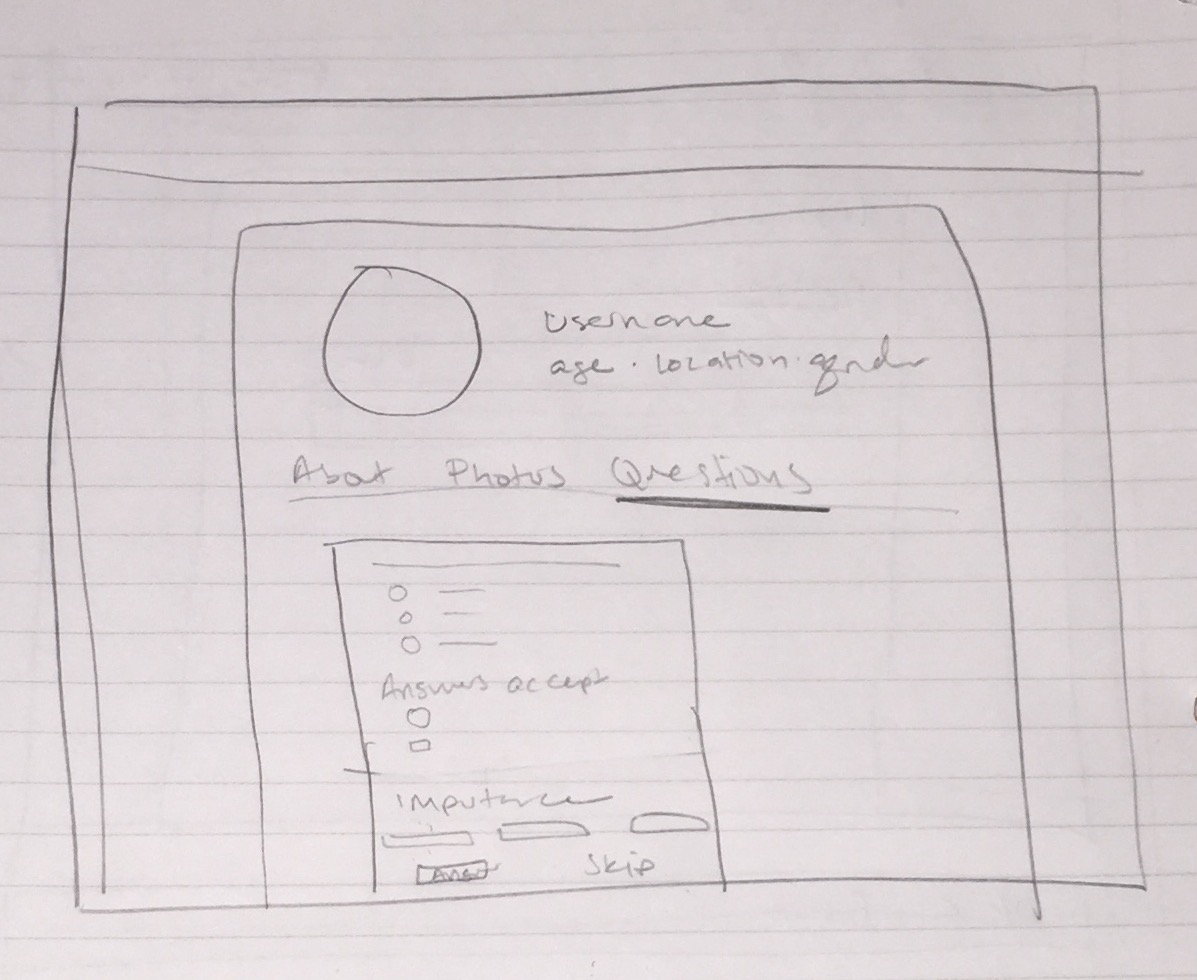 Username
age · location · gender
About Photos Questions
Answers accept
Importance
Skip